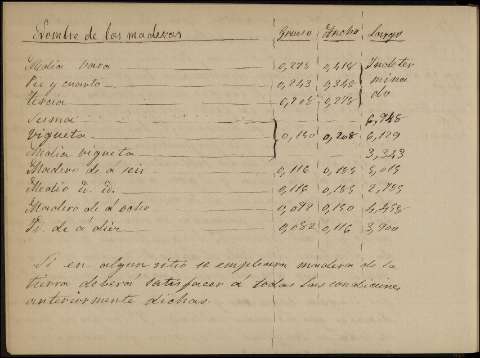 Nombre de las maderas Grueso Ancho Largo
Media vara 0,278 0,418 Indeter
Pie y cuarto 0,243 0,348 mina
Tercia 0,208 0,278 do
Sesma 6,948
Vigueta 0,150 0,208 6,129
Media vigueta 3,343
Madero de á seis 0,116 5,015
Medio id. id. 0,116
Madero de á ocho
Id. de á diez 0,116 3,900
Si en algun sitio se empleara madera de la
tierra deberá satisfacer á todas las condiciones
anteriormente dichas